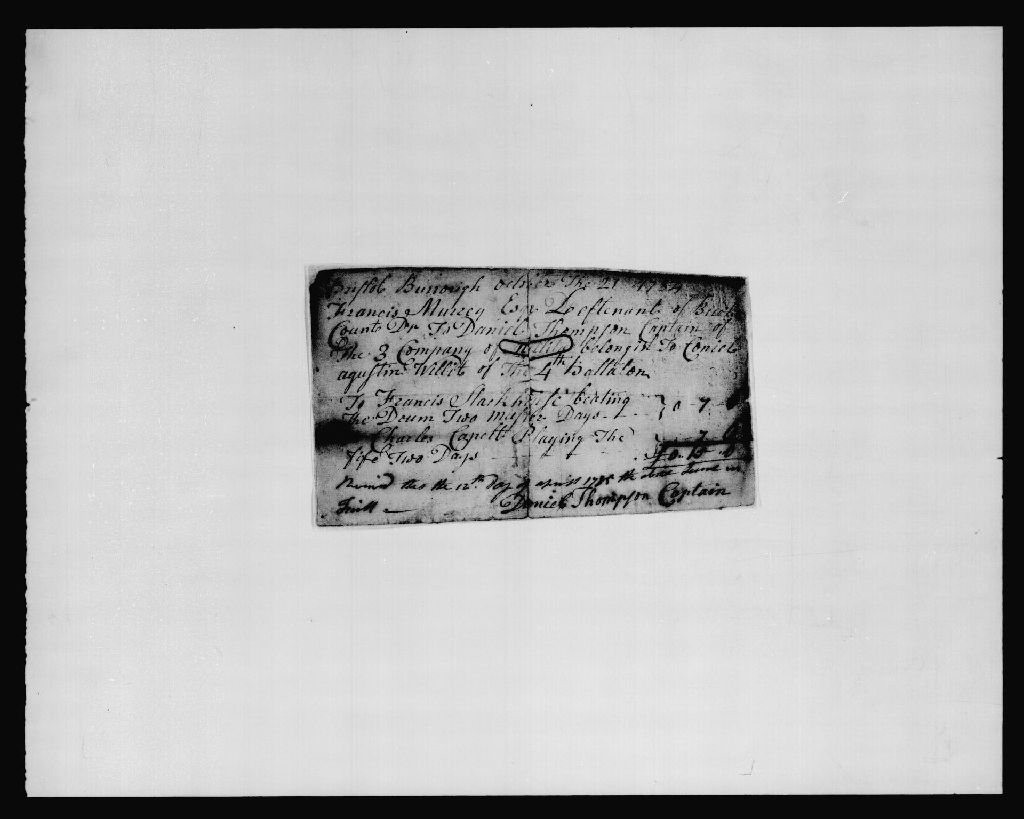 Bristol Burrough October The 21 1784
Francis Murrey Esqr Leftenant of Bucks
County Dr To Daniel Thompson Captain of
The 3 Company of Militia belongin To Conlel
agustin Willit of The 4th Battalon
To Francis Stackhouse beating
The Drum Two Muster Days } 0 7 6
Charles Capell Playing The
fife Two Days 7 6
£0 15 0
Received this the 12th Day of 1785 the above Sume in
full Daniel Thompson Captain